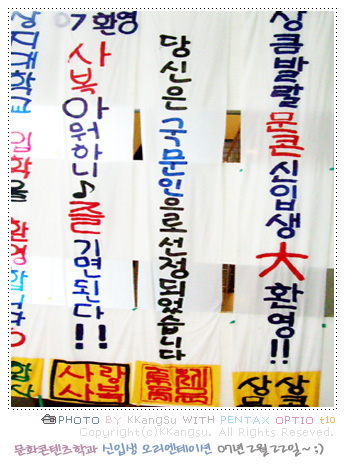 07 환영
사복아 뭐하니♪ 즐기면된다!!
당신은 국문인으로 선정되었습니다
상콤발랄 문콘 신입생 大 환영!!
사랑
사복
상큼
PHOTO BY KKangSu WITH PENTAX OPTIO t10
Copyright(c)KKangsu. All Rights Reserved.
문화콘텐츠학과 신입생 오리엔테이션 07년 2월 22일~ ;)